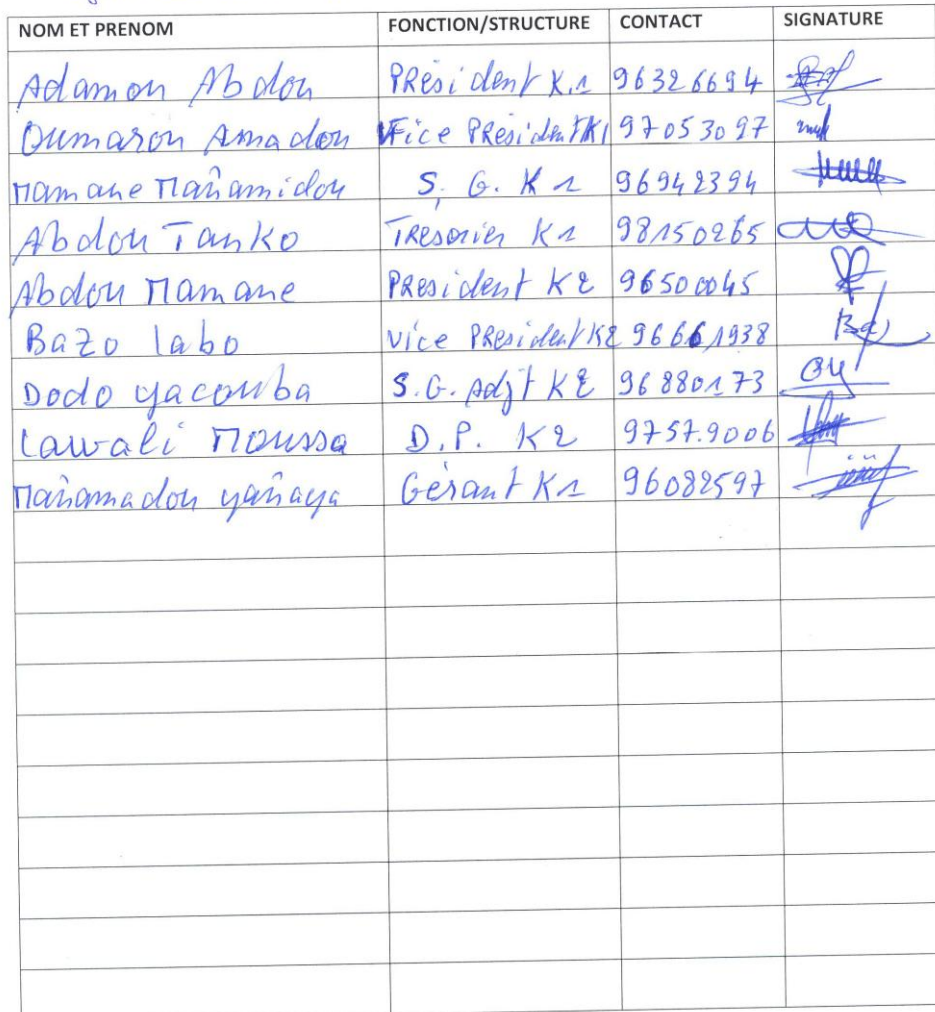 NOM ET PRENOM FONCTION/STRUCTURE CONTACT SIGNATURE
Adamou Abdou Président K1 96326694
Oumarou Amadou Vice Président K1 97053097
Mamane Mahamidou S. G. K1 96942394
Abdou Tanko Trésorier K1 98150265
Abdou Mamane Président K2 96500045
Bazo labo Vice Président K2 96661938
Dodo yacouba S.G. Adjt K2 96880173
Lawali Moussa D.P. K2 9757.9006
Mahamadou yahaya Gérant K1 96082597